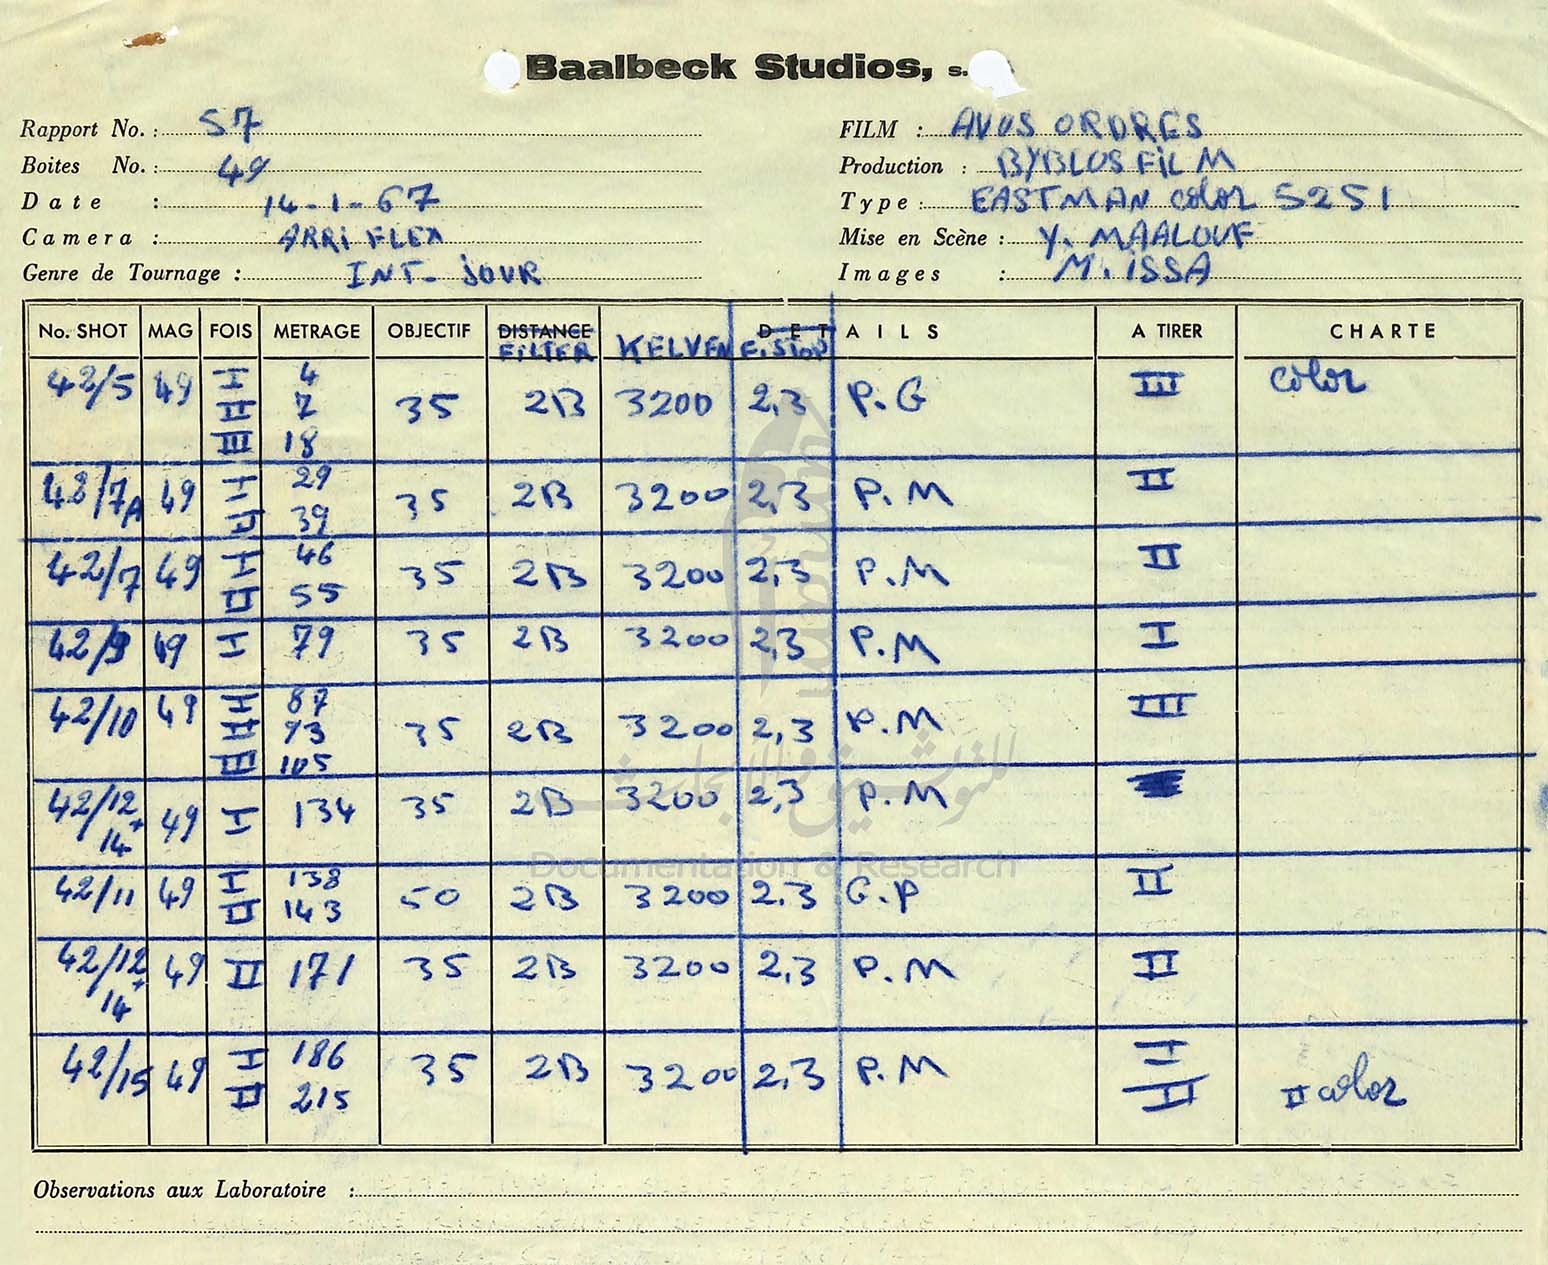 Baalbeck Studios, s.
Rapport No. : 57
Boites No. : 49
Date : 14-1-67
Camera : ARRI FLEX
Genre de Tournage : INT - JOUR
FILM : AVOS ORDRES
Production : BYBLOS FILM
Type : EASTMAN COLOR 5251
Mise en Scène : Y. MAALOUF
Images : M. ISSA
No. SHOT MAG FOIS METRAGE OBJECTIF DISTANCE DETAILS A TIRER CHARTE
FILTER KELVEN
42/5 49 I 4 35 2B 3200 2,3 P.G III color
II 7
III 18
42/7A 49 I 29 35 2B 3200 2,3 P.M II
II 39
42/7 49 I 46 35 2B 3200 2,3 P.M II
II 55
42/9 49 I 79 35 2B 3200 2,3 P.M I
42/10 49 I 87 35 2B 3200 2,3 P.M III
II 93
III 105
42/12 + 14 49 I 134 35 2B 3200 2,3 P.M
42/11 49 I 138 50 2B 3200 2.3 G.P II
II 143
42/12 + 14 49 II 171 35 2B 3200 2,3 P.M II
42/15 49 I 186 35 2B 3200 2,3 P.M I
II 215 II II color
Observations aux Laboratoire :
umam
للتوثيق والأبحاث
Documentation & Research